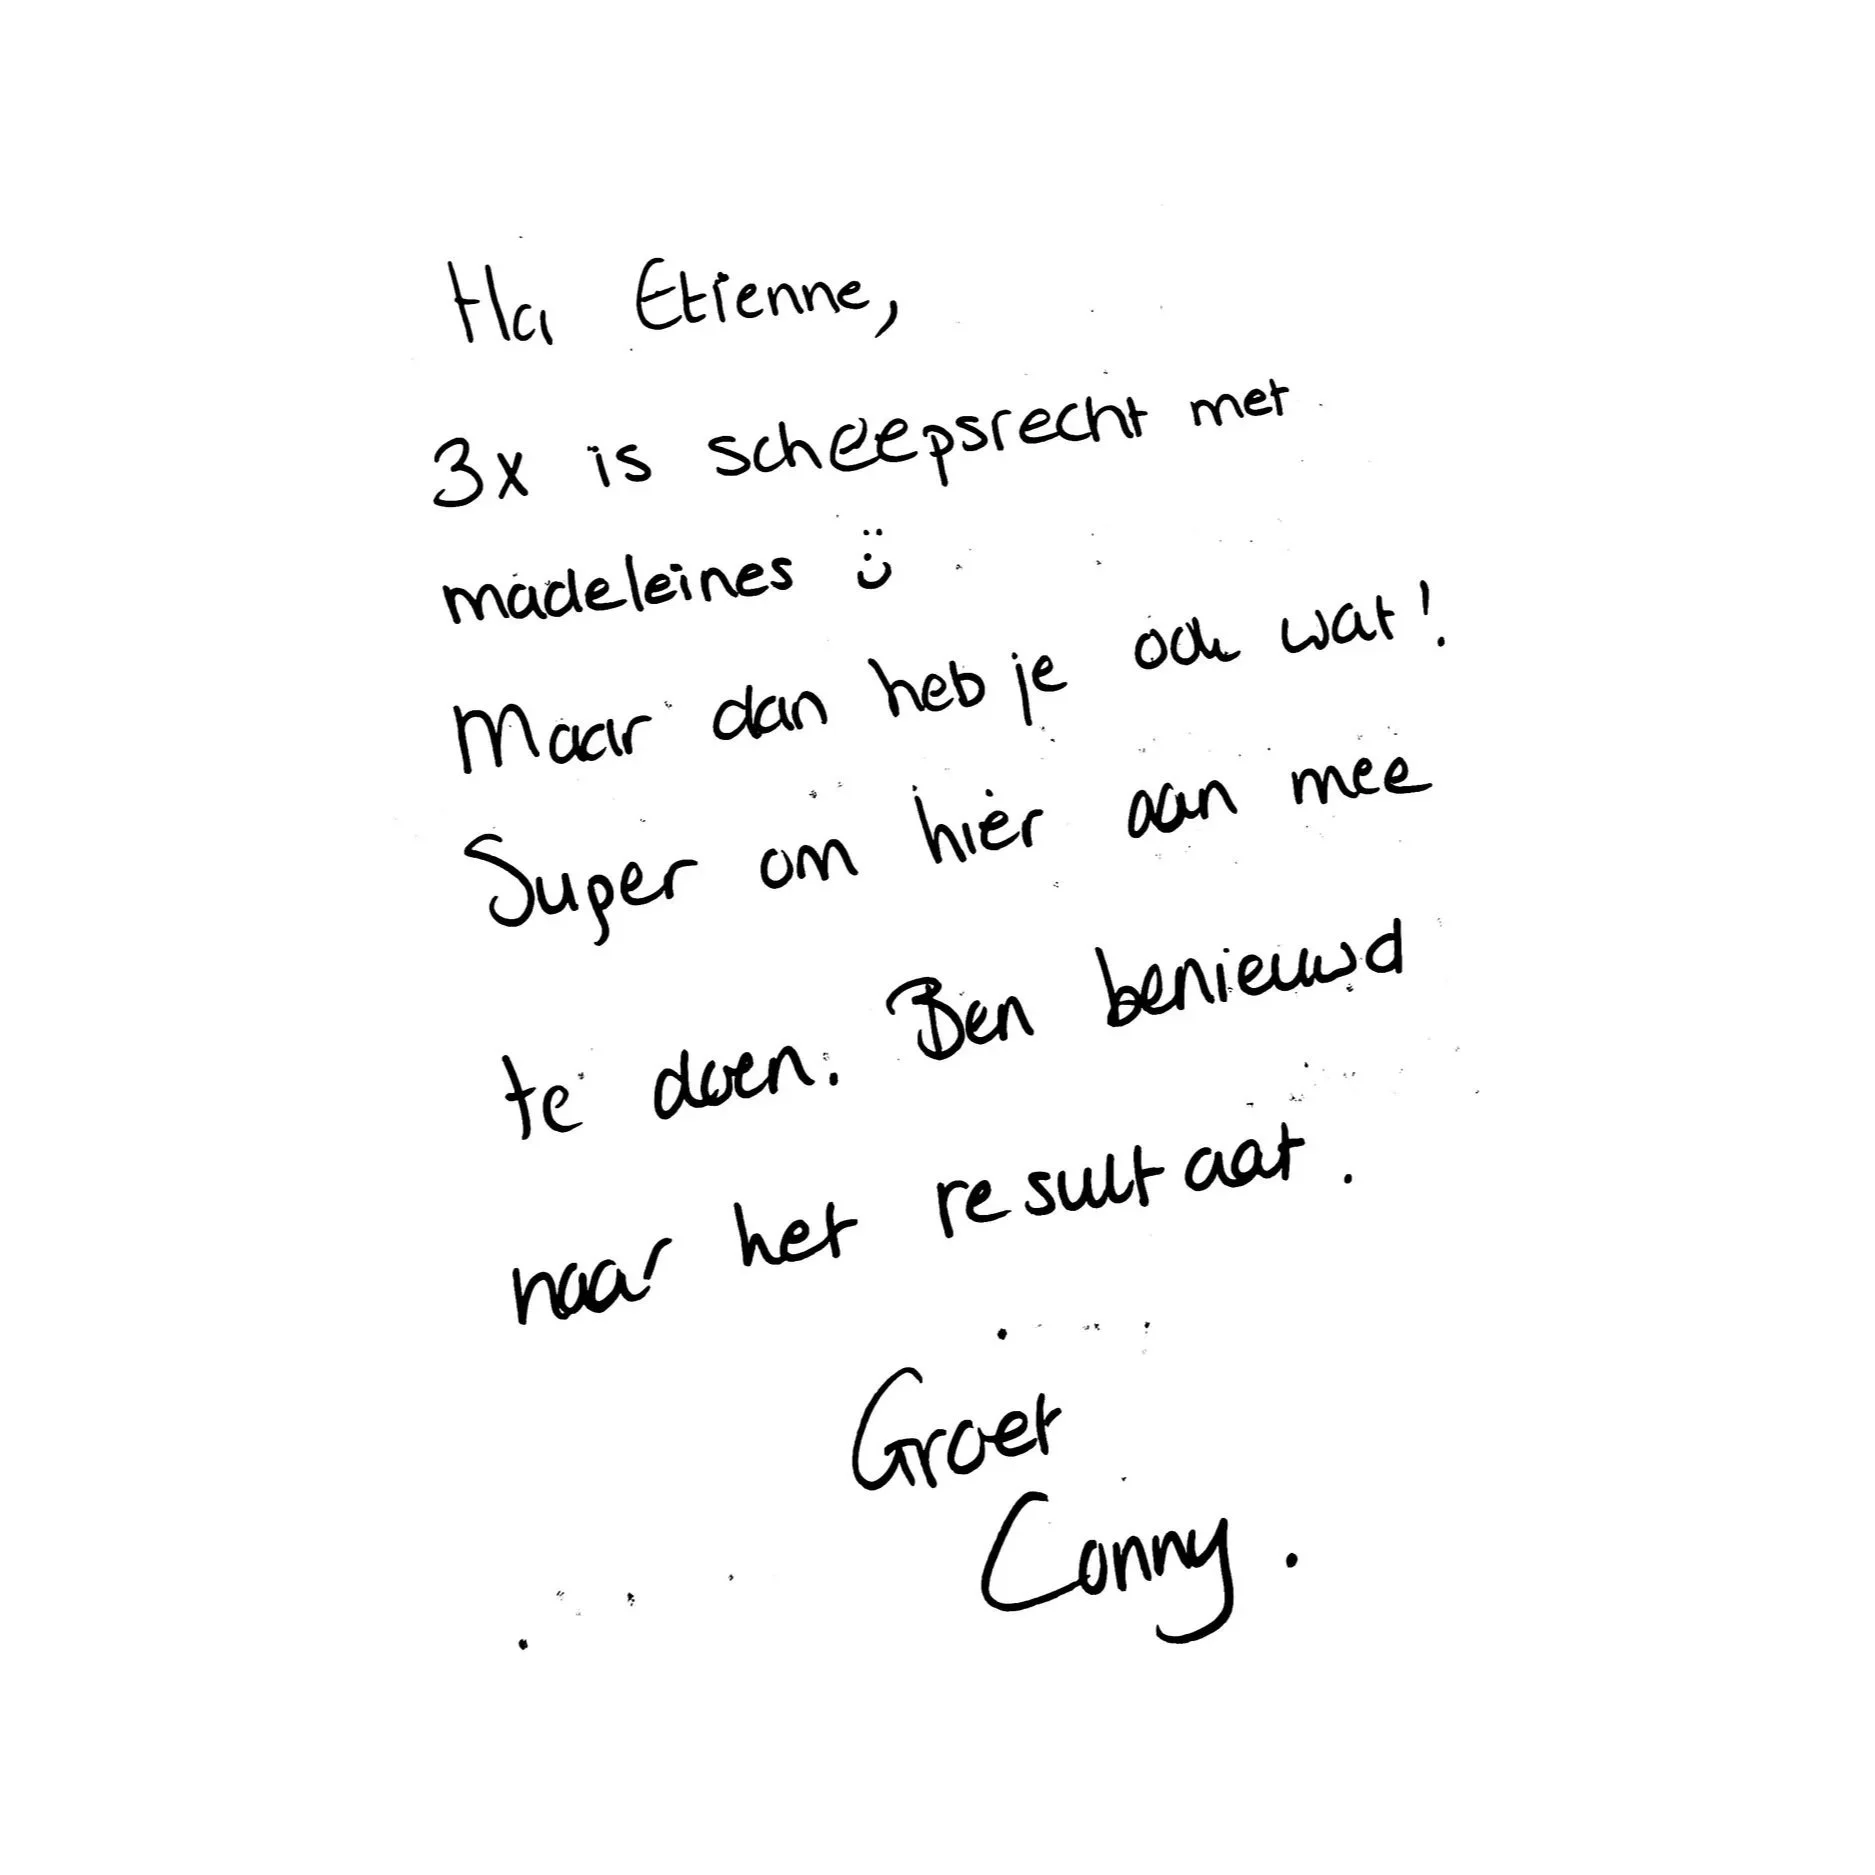 Ha Etienne,
3x is scheepsrecht met
madeleines :)
Maar dan heb je ook wat!
Super om hier aan mee
te doen. Ben benieuwd
naar het resultaat.
Groet
Conny.